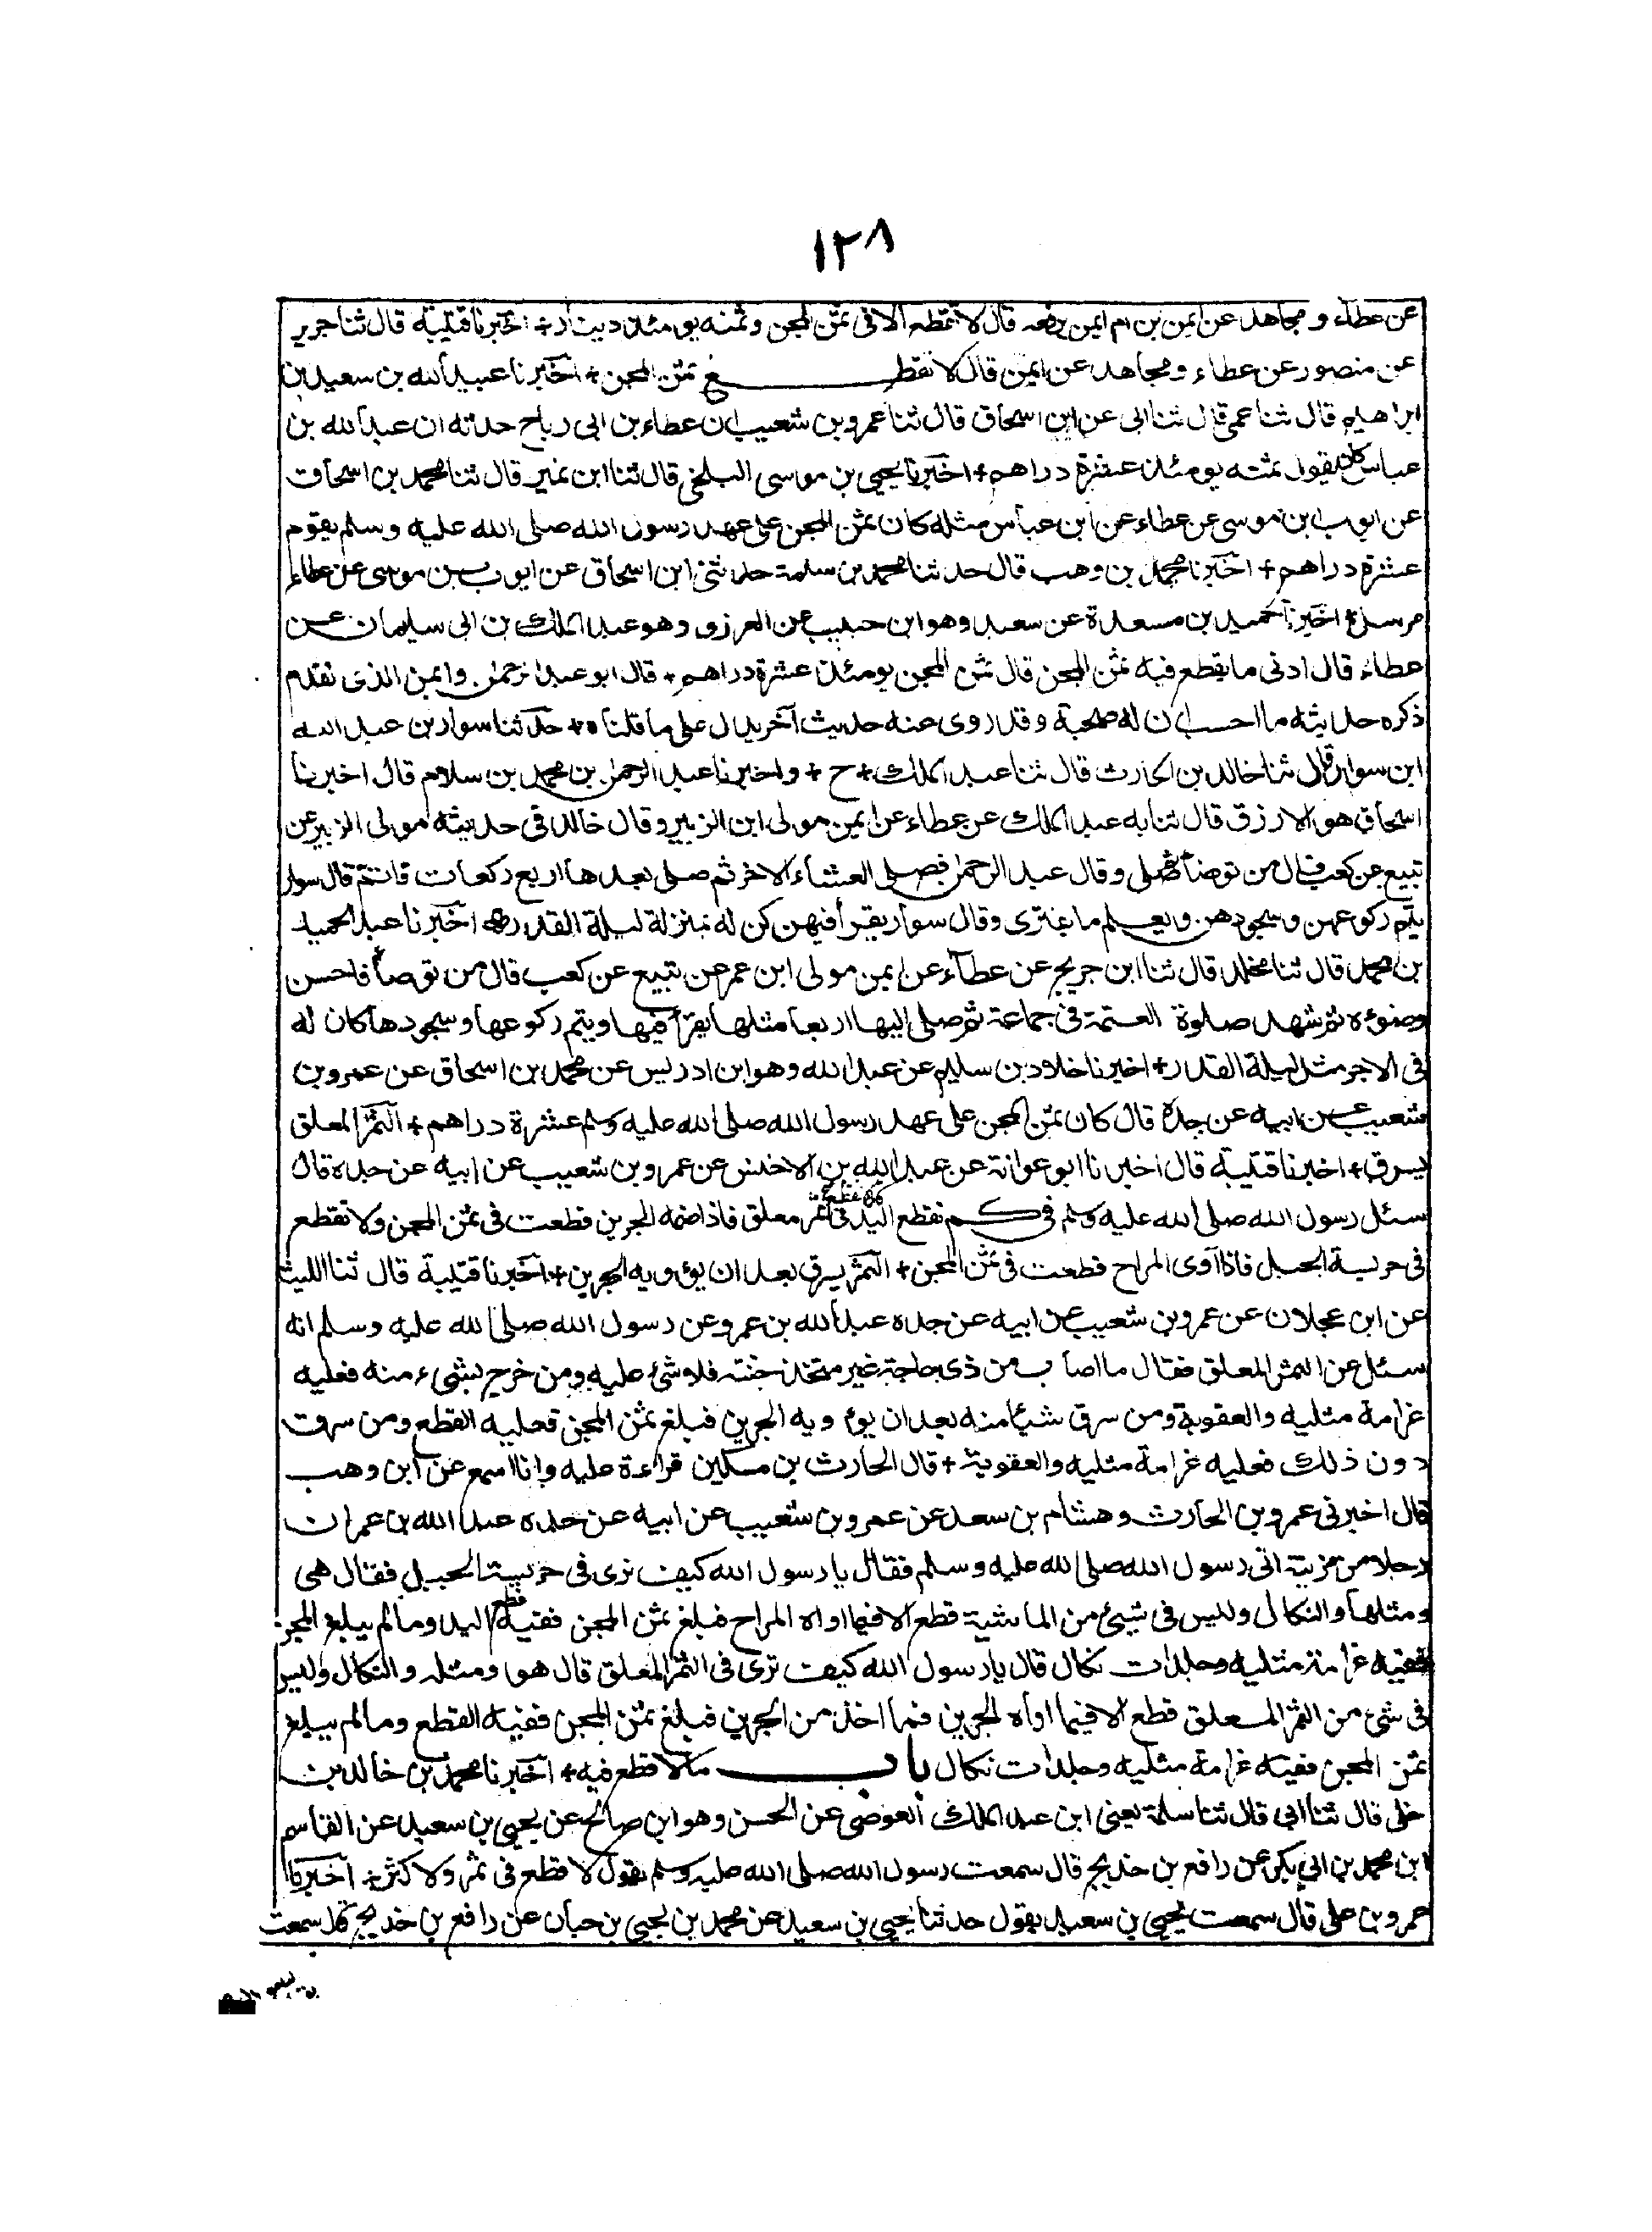 ١٢٨
عن عطاء و مجاهد عن ايمن بن ام ايمن يرفعه قال لا تقطع الا في ثمن المجن و ثمنه يومئذ دينار + اخبرنا قتيبة قال ثنا جرير
عن منصور عن عطاء و مجاهد عن ايمن قال لا تقطع ثمن المجن + اخبرنا عبيد الله بن سعيد بن
ابراهيم قال ثنا عمي قال ثنا ابي عن ابن اسحاق قال ثنا عمرو بن شعيب ان عطاء بن ابي رباح حدثه ان عبد الله بن
عباس كان يقول ثمنه يومئذ عشرة دراهم + اخبرنا يحيى بن موسى البلخي قال ثنا ابن نمير قال ثنا محمد بن اسحاق
عن ايوب ابن موسى عن عطاء عن ابن عباس مثله كان ثمن المجن على عهد رسول الله صلى الله عليه وسلم يقوم
عشرة دراهم + اخبرنا محمد بن وهب قال حدثنا محمد بن سلمة حدثني ابن اسحاق عن ايوب بن موسى عن عطاء
مرسل + اخبرنا حميد بن مسعدة عن سعيد وهو ابن حبيب عن العرزمي وهو عبد الملك بن ابي سليمان عن
عطاء قال ادنى ما يقطع فيه ثمن المجن قال ثمن المجن يومئذ عشرة دراهم + قال ابو عبد الرحمن وايمن الذي تقدم
ذكره حديثه ما احسب ان له صحبة وقد روى عنه حديث آخر يدل على ما قلناه + حدثنا سوار بن عبد الله
ابن سوار قال ثنا خالد بن الحارث قال ثنا عبد الملك + ح + واخبرنا عبد الرحمن بن محمد بن سلام قال اخبرنا
اسحاق هو الازرق قال ثنا به عبد الملك عن عطاء عن ايمن مولى ابن الزبير وقال خالد في حديثه مولى الزبير عن
تبيع عن كعب قال من توضأ فصلى وقال عبد الرحمن فصلى العشاء الاخر ثم صلى بعدها اربع ركعات فاتم قال سوار
يتم ركوعهن وسجودهن ويعلم ما يقترئ وقال سوار يقرأ فيهن كن له بمنزلة ليلة القدر اخبرنا عبد الحميد
بن محمد قال ثنا مخلد قال ثنا ابن جريج عن عطاء عن ايمن مولى ابن عمر عن تبيع عن كعب قال من توضأ فاحسن
وضوءه ثم شهد صلوة العتمة في جماعة ثم صلى اليها اربعا مثلها يقرأ فيها ويتم ركوعها وسجودها كان له
في الاجر مثل ليلة القدر + اخبرنا خلاد بن سليم عن عبد الله وهو ابن ادريس عن محمد بن اسحاق عن عمرو بن
شعيب عن ابيه عن جده قال كان ثمن المجن على عهد رسول الله صلى الله عليه وسلم عشرة دراهم + الثمر المعلق
يسرق + اخبرنا قتيبة قال اخبرنا ابو عوانة عن عبد الله بن الاخنس عن عمرو بن شعيب عن ابيه عن جده قال
سئل رسول الله صلى الله عليه وسلم في كم تقطع اليد في ثمر معلق فاذا ضمه الجرين قطعت في ثمن المجن ولا تقطع
في حريسة الجبل فاذا آوى المراح قطعت في ثمن المجن + الثمر يسرق بعد ان يؤويه الجرين + اخبرنا قتيبة قال ثنا الليث
عن ابن عجلان عن عمرو بن شعيب عن ابيه عن جده عبد الله بن عمرو عن رسول الله صلى الله عليه وسلم انه
سئل عن الثمر المعلق فقال ما اصاب من ذي حاجة غير متخذ خبنة فلا شئ عليه ومن خرج بشيء منه فعليه
غرامة مثليه والعقوبة ومن سرق شيئا منه بعد ان يؤويه الجرين فبلغ ثمن المجن فعليه القطع ومن سرق
دون ذلك فعليه غرامة مثليه والعقوبة + قال الحارث بن مسكين قراءة عليه وانا اسمع عن ابن وهب
قال اخبرني عمرو بن الحارث وهشام بن سعد عن عمرو بن شعيب عن ابيه عن جده عبد الله بن عمر ان
رجلا من مزينة اتى رسول الله صلى الله عليه وسلم فقال يا رسول الله كيف ترى في حريسة الجبل فقال هي
ومثلها والنكال وليس في شيئ من الماشية قطع الا فيما اواه المراح فبلغ ثمن المجن ففيه قطع اليد وما لم يبلغ المجن
ففيه غرامة مثليه وجلدات نكال قال يا رسول الله كيف ترى في الثمر المعلق قال هو ومثله والنكال وليس
في شئ من الثمر المعلق قطع الا فيما اواه الجرين فما اخذ من الجرين فبلغ ثمن المجن ففيه القطع وما لم يبلغ
ثمن المجن ففيه غرامة مثليه وجلدات نكال باب ما لا قطع فيه + اخبرنا محمد بن خالد بن
خلي قال ثنا ابي قال ثنا سلمة يعني ابن عبد الملك العوضي عن الحسن وهو ابن صالح عن يحيى بن سعيد عن القاسم
ابن محمد بن ابي بكر عن رافع بن خديج قال سمعت رسول الله صلى الله عليه وسلم يقول لا قطع في ثمر ولا كثر + اخبرنا
عمرو بن علي قال سمعت يحيى بن سعيد يقول حدثنا يحيى بن سعيد عن محمد بن يحيى بن حبان عن رافع بن خديج قال سمعت